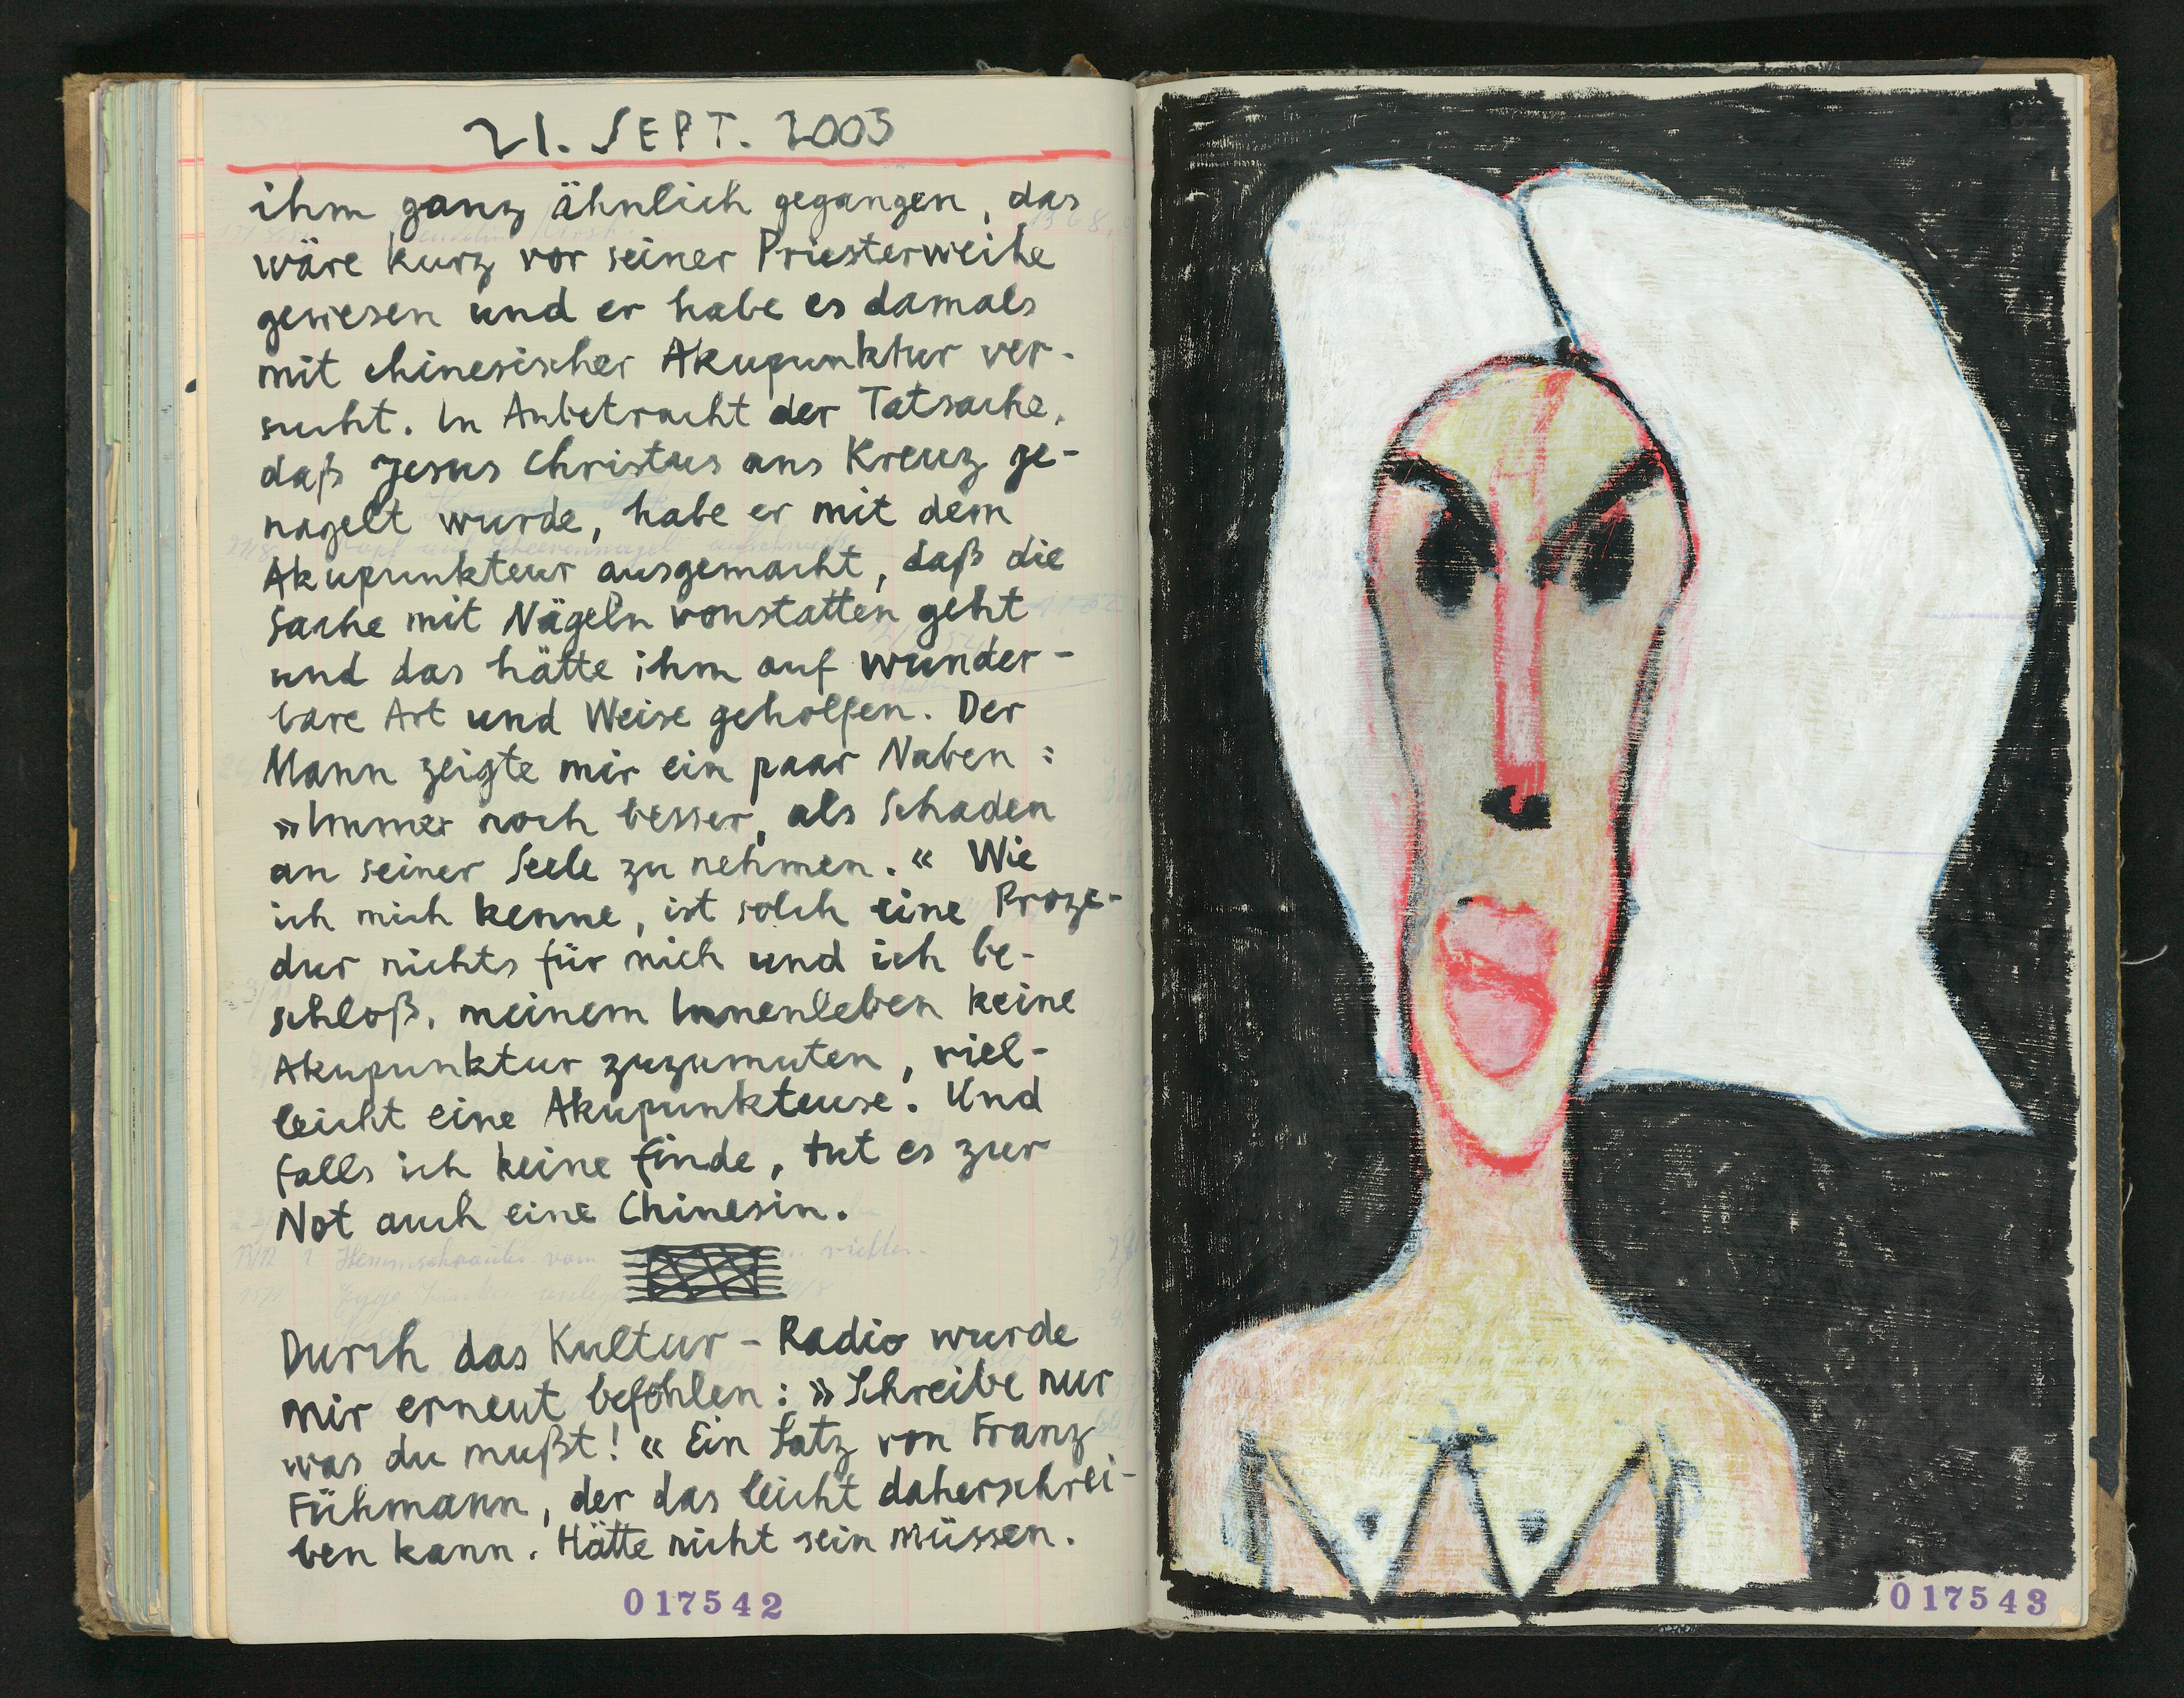 21. SEPT. 2005
ihm ganz ähnlich gegangen, das
wäre kurz vor seiner Priesterweihe
gewesen und er habe es damals
mit chinesischer Akupunktur ver-
sucht. In Anbetracht der Tatsache,
daß Jesus Christus ans Kreuz ge-
nagelt wurde, habe er mit dem
Akupunkteur ausgemacht, daß die
Sache mit Nägeln vonstatten geht
und das hätte ihm auf wunder-
bare Art und Weise geholfen. Der
Mann zeigte mir ein paar Naben:
»Immer noch besser, als Schaden
an seiner Seele zu nehmen.« Wie
ich mich kenne, ist solch eine Proze-
dur nichts für mich und ich be-
schloß, meinem Innenleben keine
Akupunktur zuzumuten, viel-
leicht eine Akupunkteuse. Und
falls ich keine finde, tut es zur
Not auch eine Chinesin.
Durch das Kultur-Radio wurde
mir erneut befohlen: »Schreibe nur
was du mußt!« Ein Satz von Franz
Fühmann, der das leicht daherschrei-
ben kann. Hätte nicht sein müssen.
017542
017543